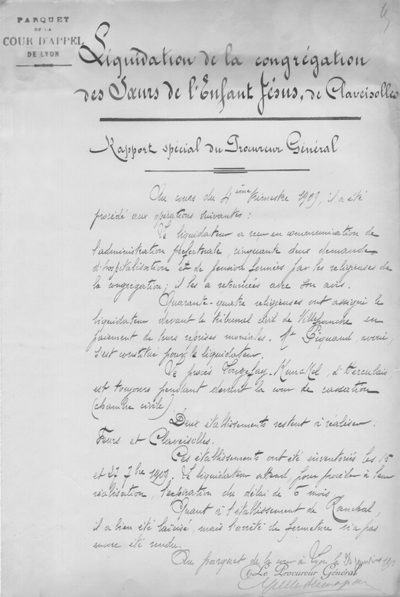 PARQUET
DE LA
COUR D'APPEL
DE LYON
Liquidation de la congrégation
des Sœurs de l'Enfant Jésus, de Claveisolles
Rapport spécial du Procureur Général
Au cours du 4ème trimestre 1909, il a été
procédé aux opérations suivantes :
Le liquidateur a reçu en communication de
l'administration préfectorale, cinquante deux demandes
d'hospitalisation et de pension formées par les religieuses de
la congrégation ; il les a retournées avec son avis.
Quarante-quatre religieuses ont assigné le
liquidateur devant le tribunal civil de Villefranche en
paiement de leurs reprises moniales. Me Piquand avoué
s'est constitué pour le liquidateur.
Le procès d'Herculais
est toujours pendant devant la cour de cassation
(chambre civile)
Deux établissements restent à réaliser
Feurs et Claveisolles.
Ces établissements ont été inventoriés les 15
et 27 9bre 1909. Le liquidateur attend, pour procéder à leur
réalisation, l'expiration du délai de 6 mois
Quant à l'établissement de Ranchal,
il a bien été laïcisé, mais l'arrêté de fermeture n'a pas
encore été rendu.
Au parquet de la cour à Lyon, le
Le Procureur Général